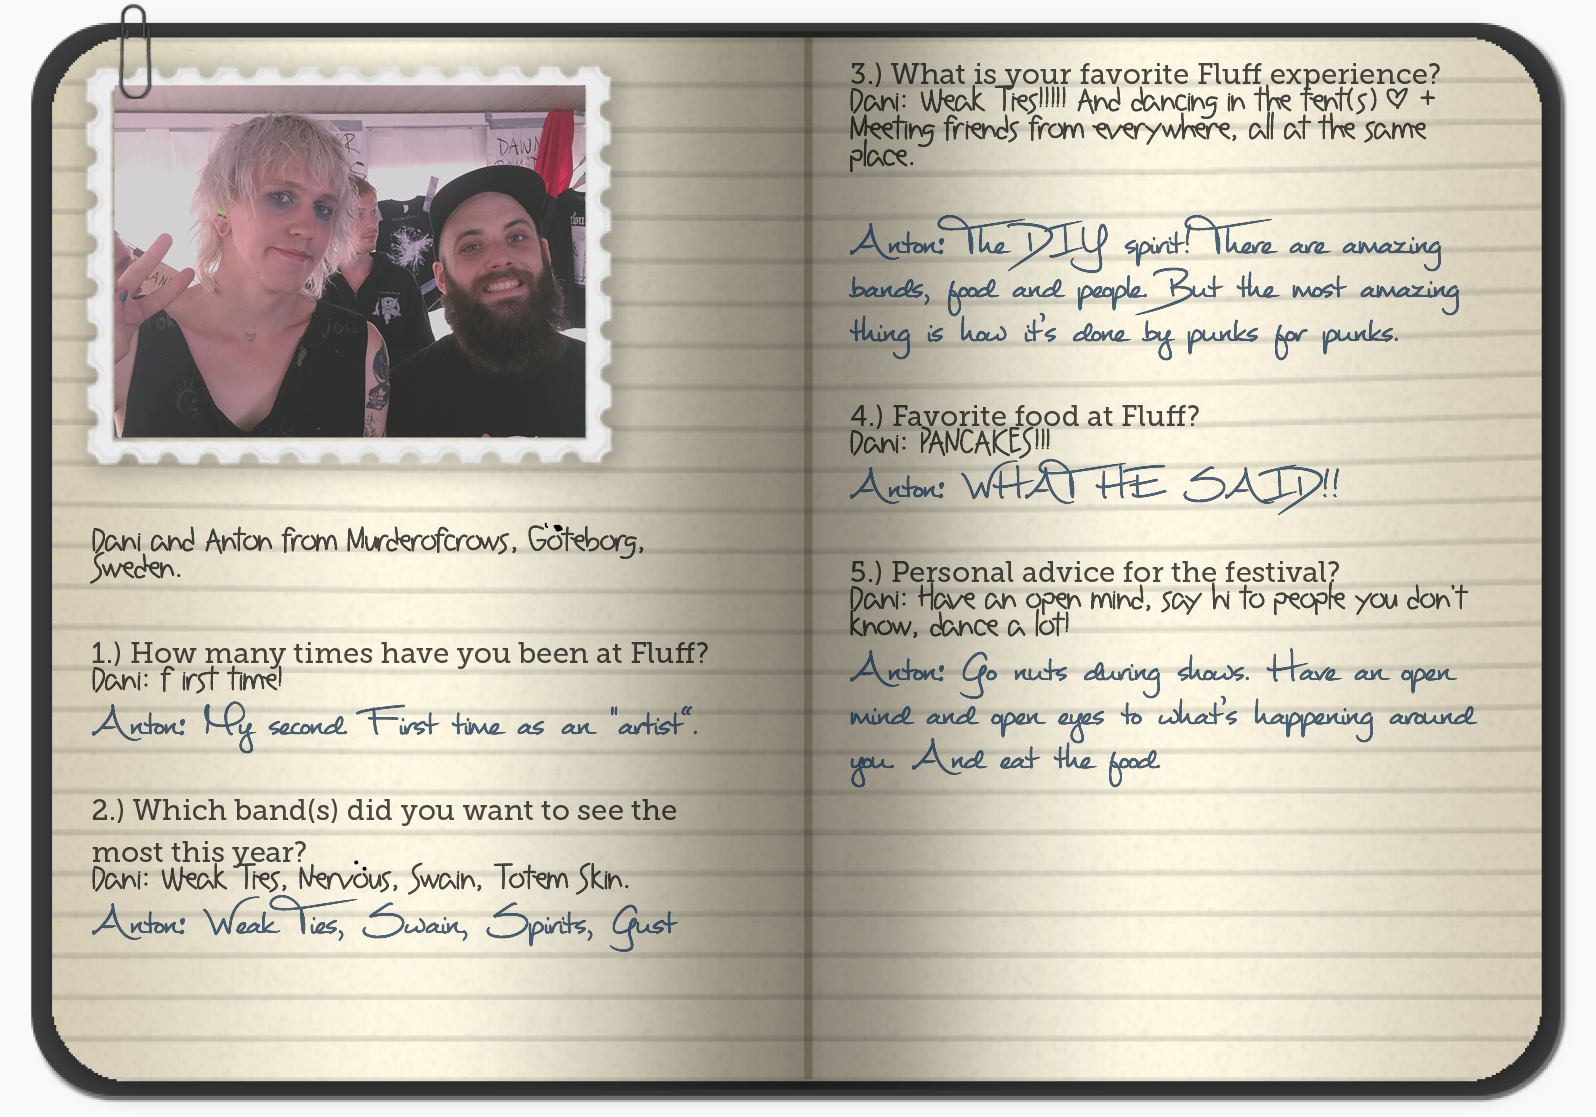 DAWN
jou
Dani and Anton from Murderofcrows, Göteborg,
Sweden.
1.) How many times have you been at Fluff?
Dani: f irst time!
Anton: My second. First time as an "artist“.
2.) Which band(s) did you want to see the
most this year?
Dani: Weak Ties, Nervöus, Swain, Totem Skin.
Anton: Weak Ties, Swain, Spirits, Gust
3.) What is your favorite Fluff experience?
Dani: Weak Ties!!!!! And dancing in the tent(s) ♡ +
Meeting friends from everywhere, all at the same
place.
Anton: The DIY spirit! There are amazing
bands, food and people. But the most amazing
thing is how it's done by punks for punks.
4.) Favorite food at Fluff?
Dani: PANCAKES!!!
Anton: WHAT HE SAID!!
5.) Personal advice for the festival?
Dani: Have an open mind, say hi to people you don't
know, dance a lot!
Anton: Go nuts during shows. Have an open
mind and open eyes to what's happening around
you. And eat the food.